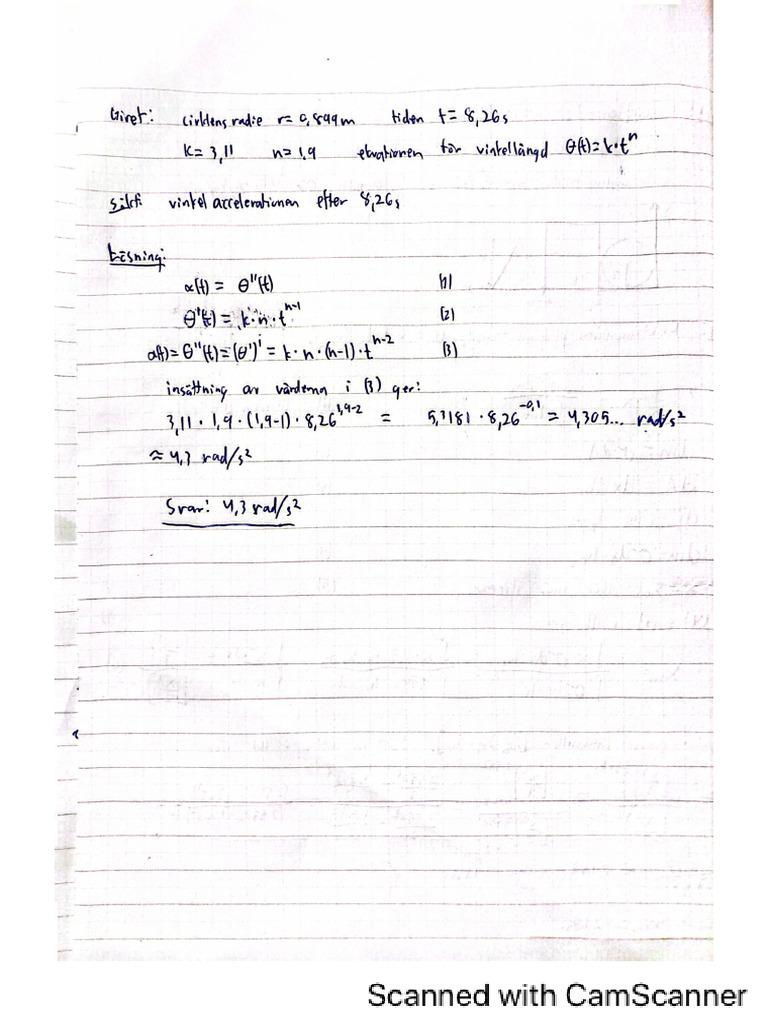 Givet: cirkelns radie r= 0,899m tiden t= 8,26s
K= 3,11 n= 1,9 ekvationen för vinkellängd θ(t)= k·t^n
Sökt: vinkel accelerationen efter 8,26s
Lösning:
α(t) = θ''(t) (1)
θ'(t) = k·n·t^n-1 (2)
α(t) = θ''(t) = (θ')' = k·n·(n-1)·t^n-2 (3)
insättning av värdena i (3) ger:
3,11 · 1,9 · (1,9-1) · 8,26^1,9-2 = 5,3181 · 8,26^-0,1 = 4,305... rad/s²
≈ 4,3 rad/s²
Svar: 4,3 rad/s²
Scanned with CamScanner